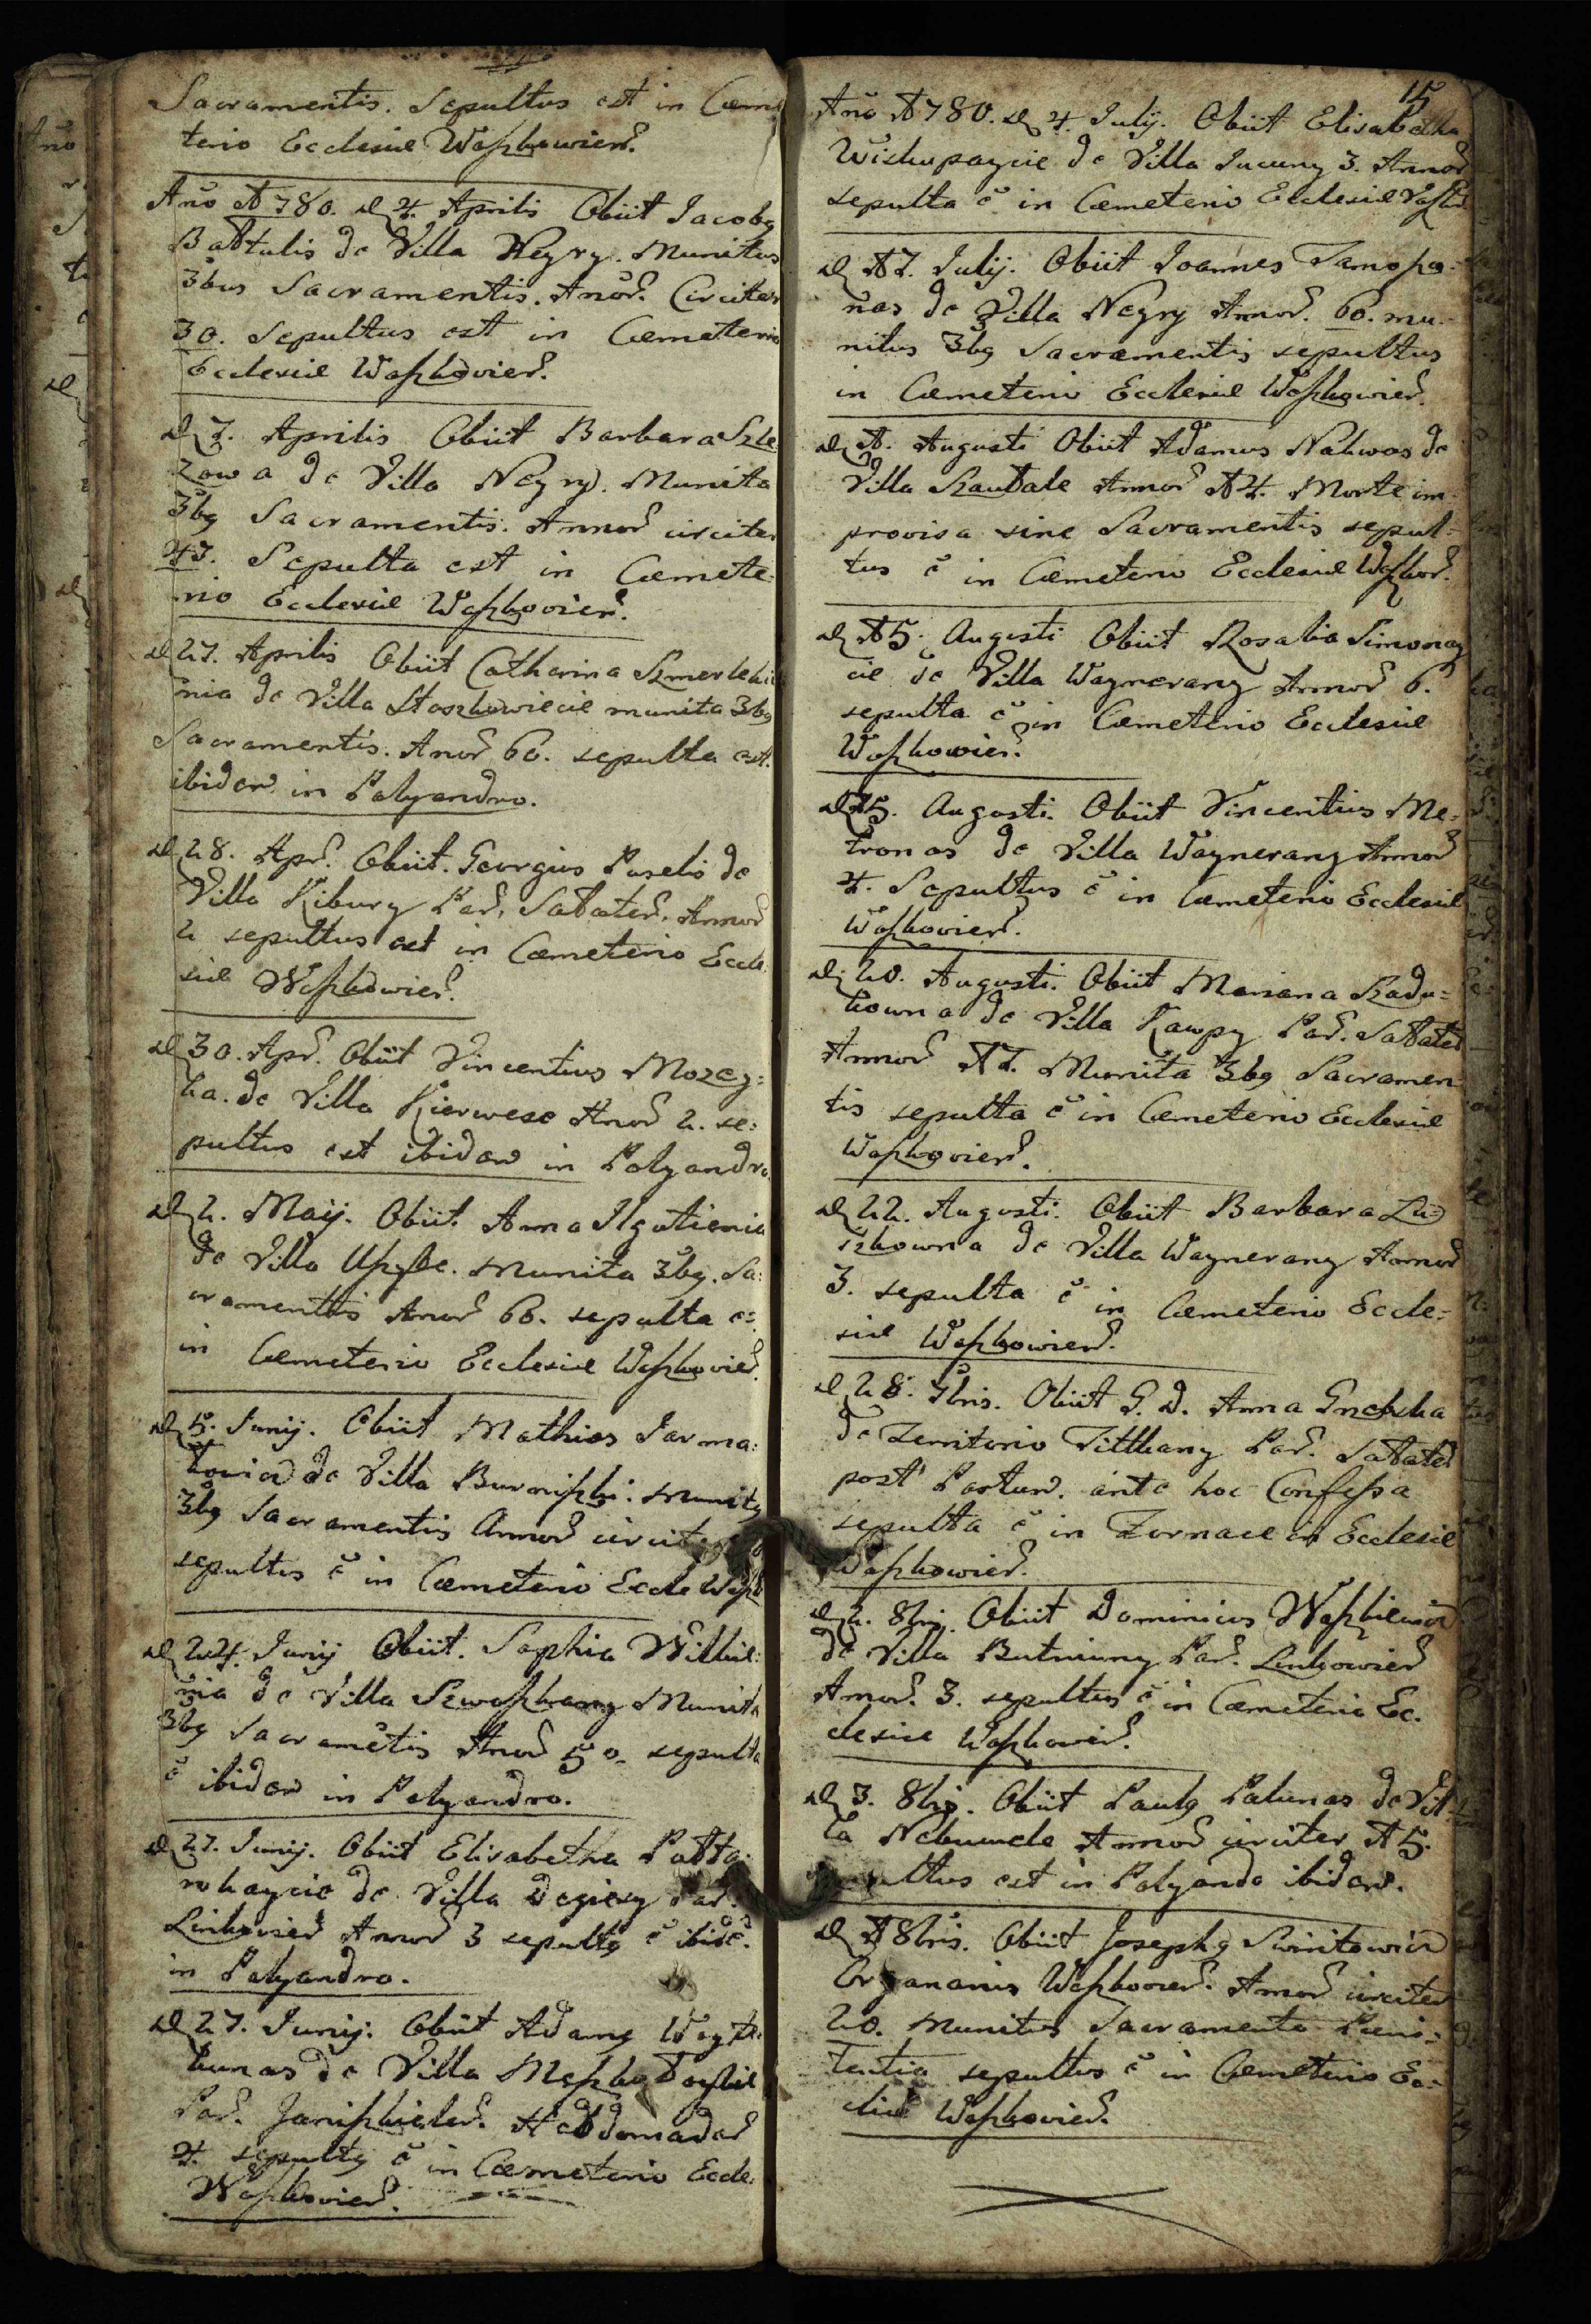 Sacramentis. Sepultus est in Cæme
terio Ecclesiæ Waszkowien.
Año 1780. d 4. Aprilis Obiit Jacobq
Battulis de Villa Negry. Munitus
3bus Sacramentis. Anor. Circiter
30. Sepultus est in Cæmeterio
Ecclesiæ Waszkovien.
d 7. Aprilis Obiit Barbara Szle
zowa de Villa Negry. Munita
3bq Sacramentis. Annor circiter
47. Sepulta est in Cæmete:
rio Ecclesiæ Waszkovien.
d 27. Aprilis Obiit Catharina
nia de Villa Stoszkowiecie munita 3bq
Sacramentis. Anor 60. sepulta est.
ibidem in Polyandro.
d 28. Apr. Obiit. Georgius Puselis de
Villa Kibury Par. Salaten. Annor
2 sepultus est in Cæmeterio Eccle
siæ Waszkowien.
d 30. Apr. Obiit Vincentius Mozey:
ka. de Villa Kierwese Anor 2. se:
pultus est ibidem in Polyandro
d 2. Maij. Obiit. Anna Ilgatienia
de Villa Upyte. munita 3bq. Sa:
cramentis Anor 60. sepulta e:
in Cæmeterio Ecclesiæ Waszkovien.
d 5. Junij. Obiit Mathias Jarma:
kowicz de Villa Burniszki. munitq
3bq Sacramentis Annor circit
sepultus e in Cæmeterio Eccle Waszk
d 24. Junij Obiit. Sophia Willkie:
nia de Villa Szwaszkany Munita
3bq Sacrametis Anor 50. sepulta
e ibidem in Polyandro.
d 27. Junij. Obiit Elisabetha Patta:
rokaycie de Villa Degiesy Par.
Linkovien Annor 3 sepulta e ibide.
in Polyandro.
d 27. Junij. Obiit Adamq Woyte
kunas de Villa
Par. Janiszkielen. Hebdomadar
4. sepultq e in Cæmeterio Eccle.
Waszkovien.
15
Año 1780. d 4. Julij. Obiit Elisabetha
Wiskupaycie de Villa Jucuny 3. Annor
sepulta e in Cæmeterio Ecclesiæ Vaszko
d 17. Julij. Obiit Joannes Tamopo:
nas de Villa Negry Annor. 60. mu:
nitus 3bq Sacramentis sepultus
in Cæmeterio Ecclesiæ Waszkowien.
d 1. Augusti Obiit Adamus Nakwos de
Villa Szaudale Annor 14. Morte im:
provisa sine Sacramentis sepul:
tus e in Cæmeterio Ecclesiæ Waszkov.
d 15. Augusti Obiit Rosalia Simonay
cie de Villa Waynerany Annor 6.
sepulta e in Cæmeterio Ecclesiæ
Waszkowien.
d 15. Augusti. Obiit Vincentius Me:
tronas de Villa Waynerany Annor
4. Sepultus e in Cæmeterio Ecclesiæ
Waszkovien.
d. 20. Augusti. Obiit Mariana Szadu:
kowna de Villa Kawpy Par. Salaten
Annor 17. Munita 3bq Sacramen
tis sepulta e in Cæmeterio Ecclesiæ
Waszkovien.
d 22. Augusti. Obiit Barbara Lu:
szkowna de Villa Waynerany Annor
3. sepulta e in Cæmeterio Eccle:
siæ Waszkowien.
d 28. 7bris. Obiit G. D. Anna
de Territorio Titkkany Par. Salaten
post Partum. ante hoc Confessa
sepulta e in Fornace in Ecclesiæ
Waszkowien.
d 2. 8bris. Obiit Dominicus Waszkiewicz
de Villa Butniuny Par. Linkowien
Annor. 3. sepultus e in Cæmeterio Ec.
clesiæ Waszkowien.
d 3. 8bris. Obiit Paulq Palunas de Vil
la Nebumele Annor circiter 15.
ultus est in Polyando ibidem.
d 1 8bris. Obiit Josephq Swirtowicz
Organarius Waszkovien. Annor circiter
20. Munitus Sacramento Pœni:
tentiæ sepultus e in Cæmeterio Ec:
cliæ Waszkovien.